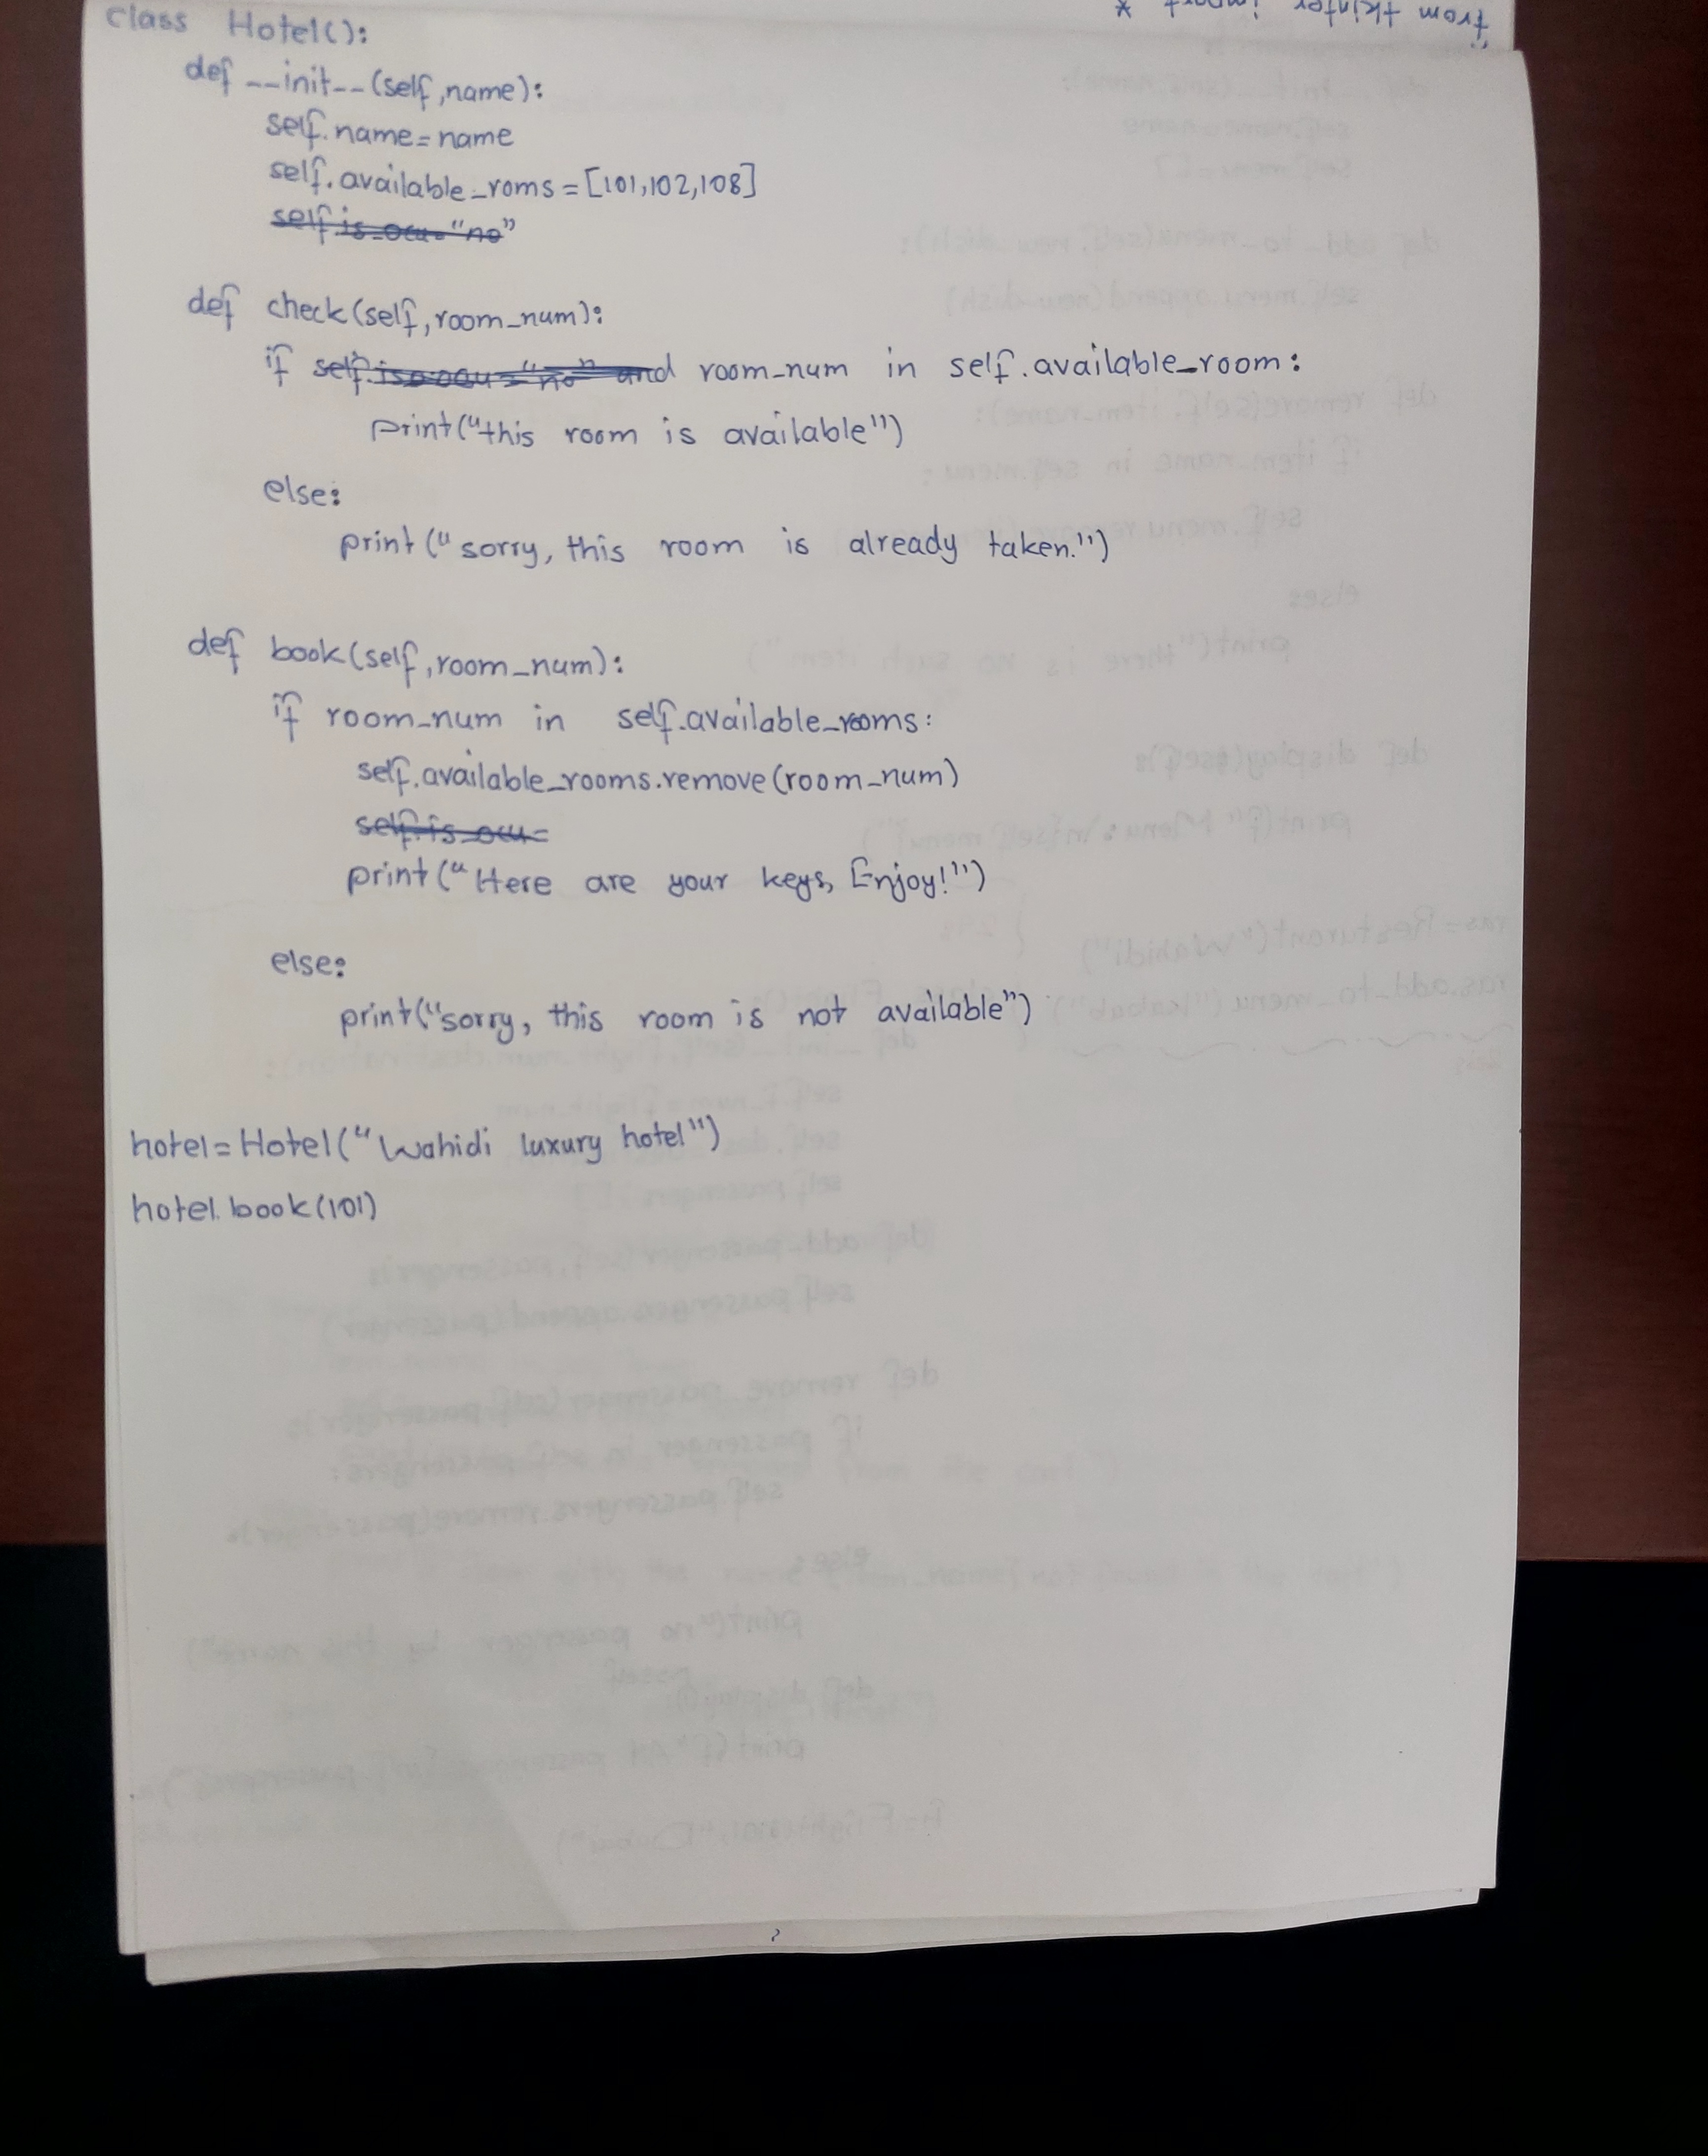 from tkinter import *
class Hotel():
def __init__(self,name):
self.name=name
self.available_roms=[101,102,108]
self.is_ocu="no"
def check(self,room_num):
if self. and room_num in self.available_room:
print("this room is available")
else:
print("sorry, this room is already taken.")
def book(self,room_num):
if room_num in self.available_rooms:
self.available_rooms.remove(room_num)
self.is_ocu=
print("Here are your keys, Enjoy!")
else:
print("sorry, this room is not available")
hotel=Hotel("Wahidi luxury hotel")
hotel.book(101)